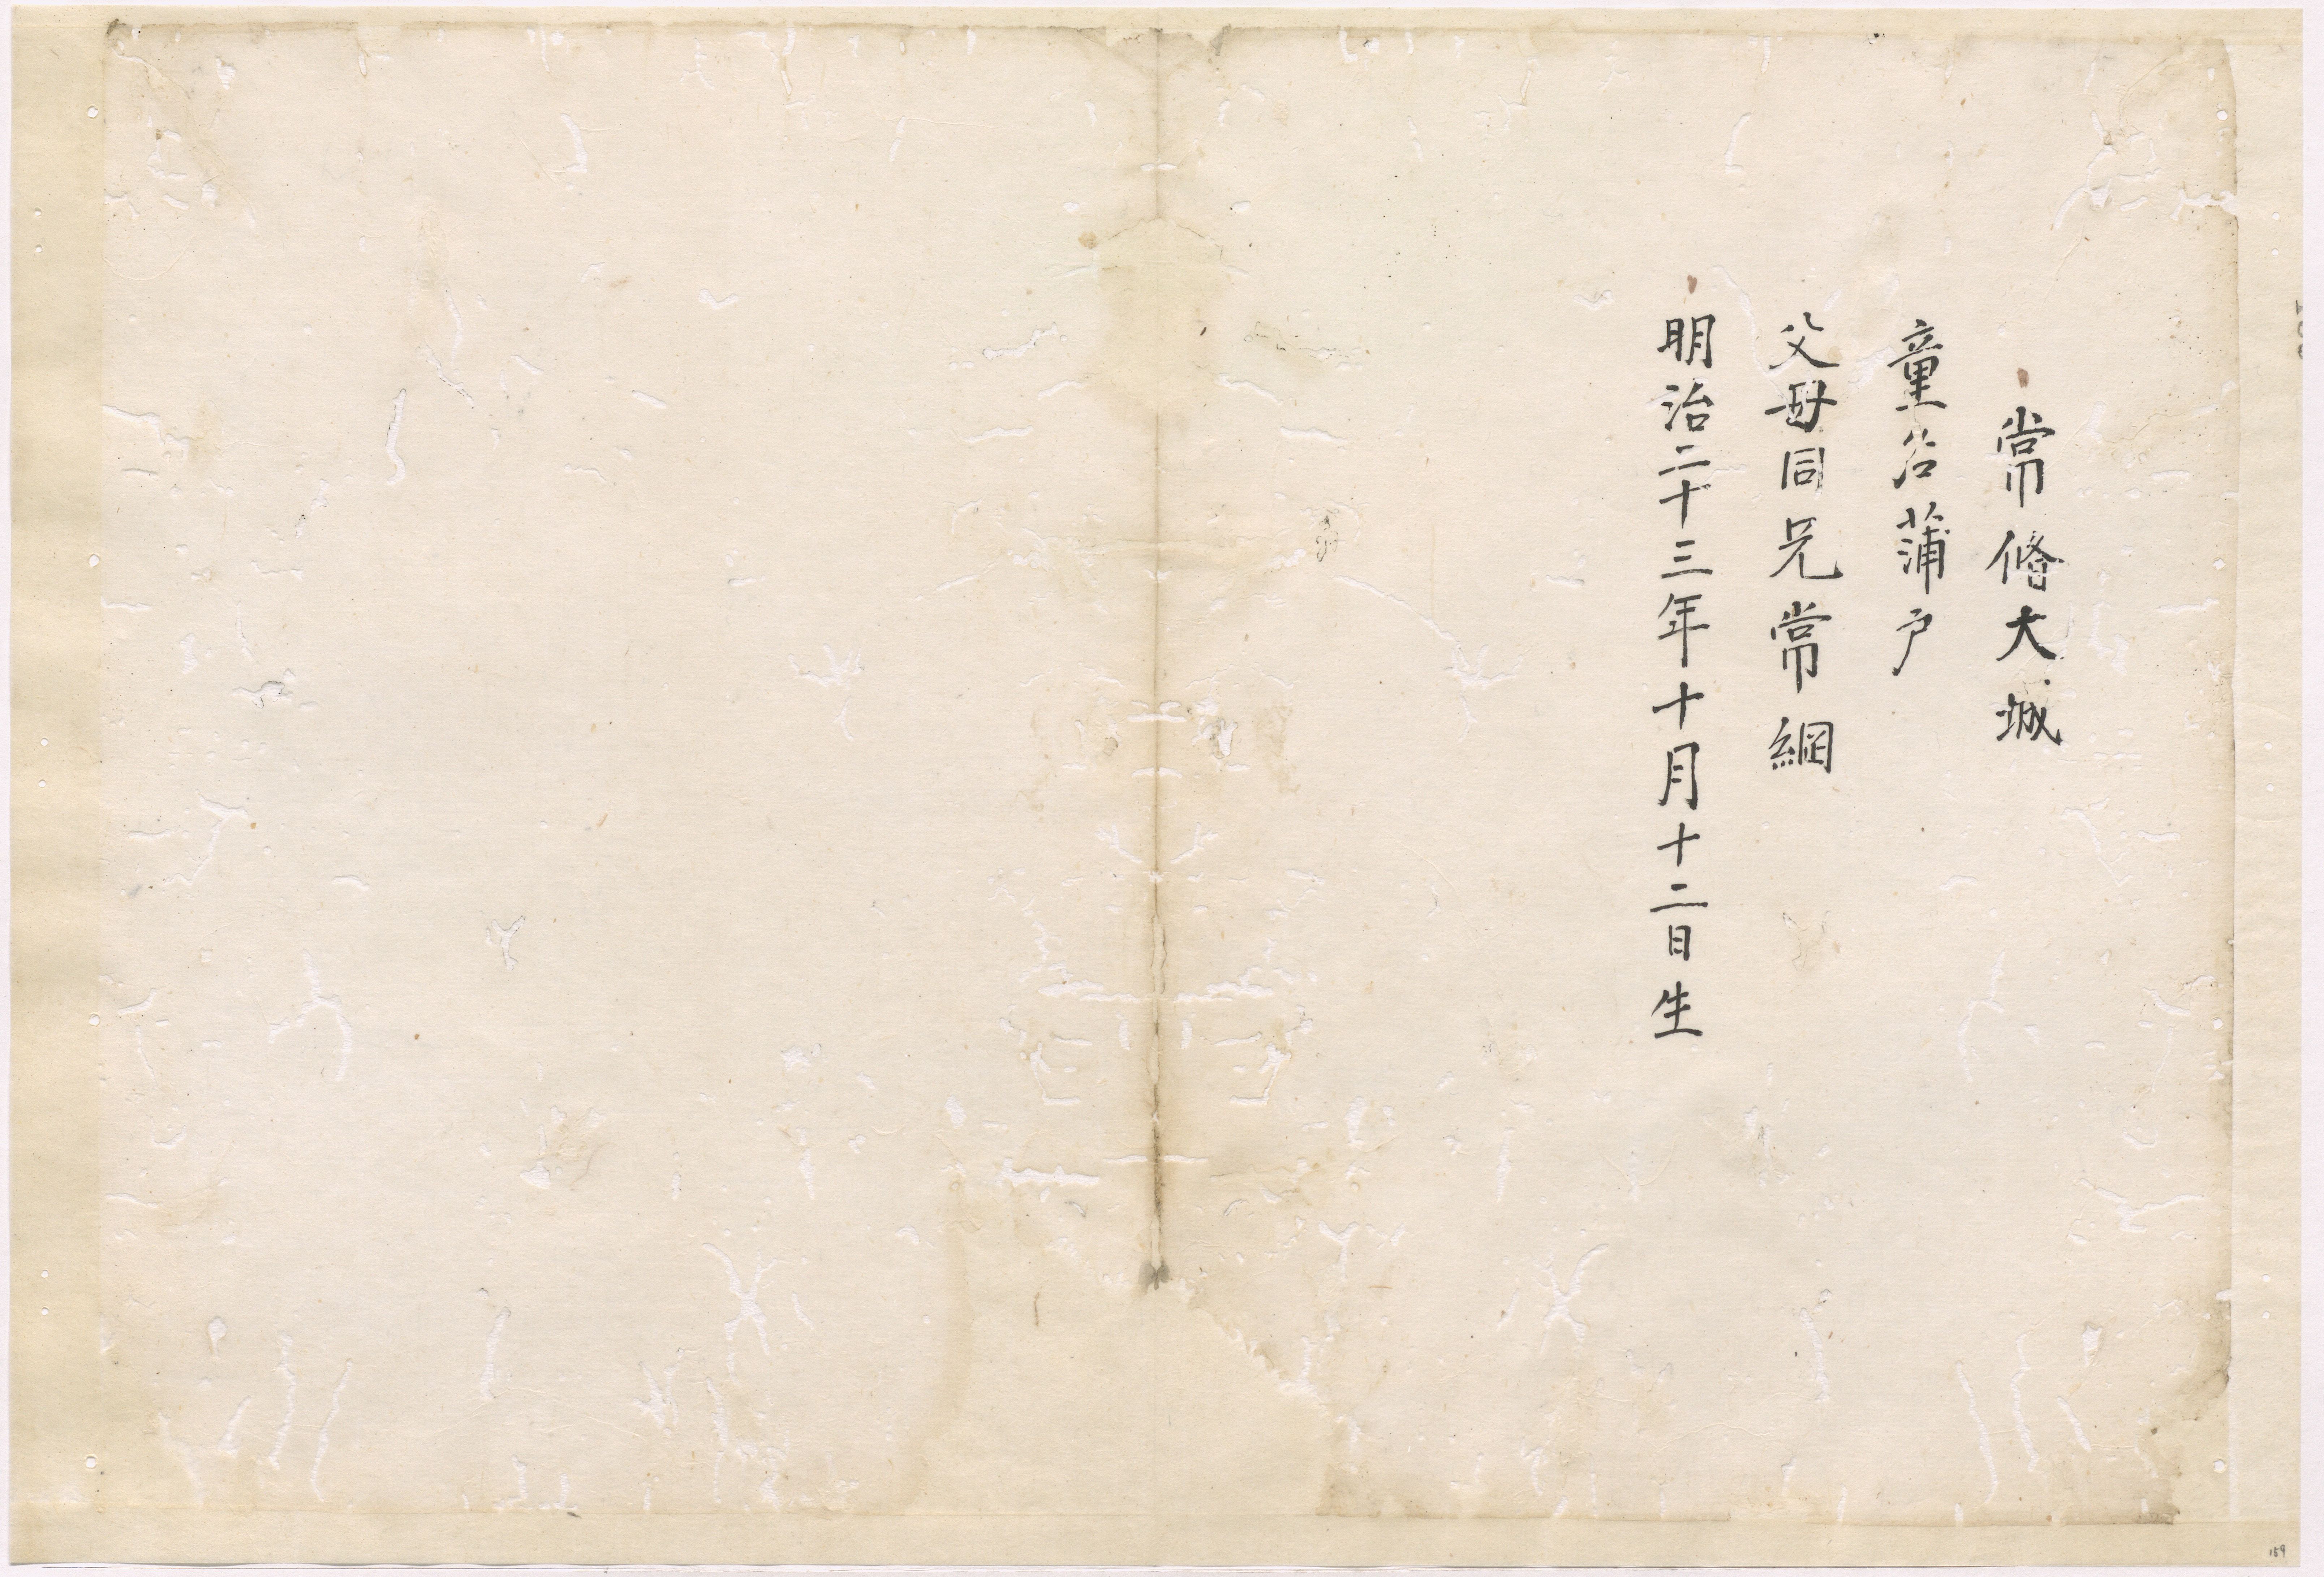 常脩大城
童名蒲戸
父母同兄常綱
明治二十三年十月十二日生
159